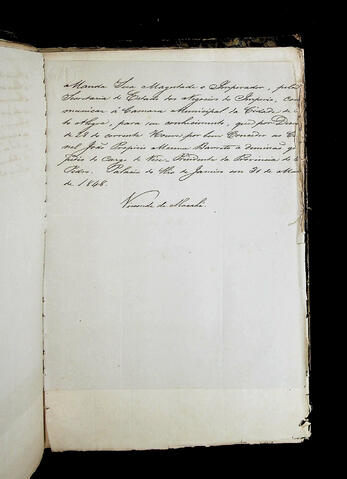 Manda Sua Magestade o Imperador, pela
Secretaria de Estado dos Negocios do Imperio, com
municar á Camara Municipal da Cidade de
to Alegre, para seu conhecimento, que por Decr
de 28 do corrente Houve por bem Conceder ao Co
nel João Propicio Menna Barreto a demissão q
pedio do Cargo de Vice-Presidente da Provincia de S.
Pedro. Palacio do Rio de Janeiro em 31 de
de 1848.
Visconde de Macahé.